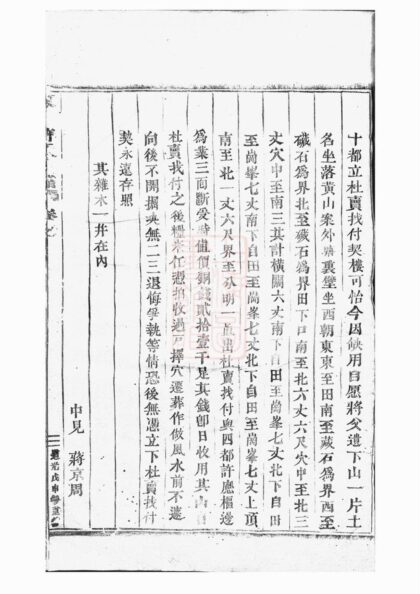 十都立杜賣找付契樓可怡今因缺用自愿將父遺下山一片土
名坐落黃山案外裏壟坐西朝東東至田南至藏石爲界西至
礒石爲界北至藏石爲界田下口南至北六丈六尺穴中至北三
丈穴中至南三其計橫闊六丈南下自田至崗峯七丈北下自田
至崗峯七丈南下自田至崗峯七丈北下自田至崗峯七丈上頂
南至北一丈六尺界至分明一直出杜賣找付與四都許應樞邊
爲業三面斷受時值價銅錢貳拾壹千足其錢卽日收用其山自
杜賣找付之後糧米任憑掐收過戶擇穴遷葬作做風水前不遺
向後不開撰與無二三退悔爭執等情恐後無憑立下杜賣找付
契永遠存照
其雜木一并在內
中見 蔣京周
道光戊申